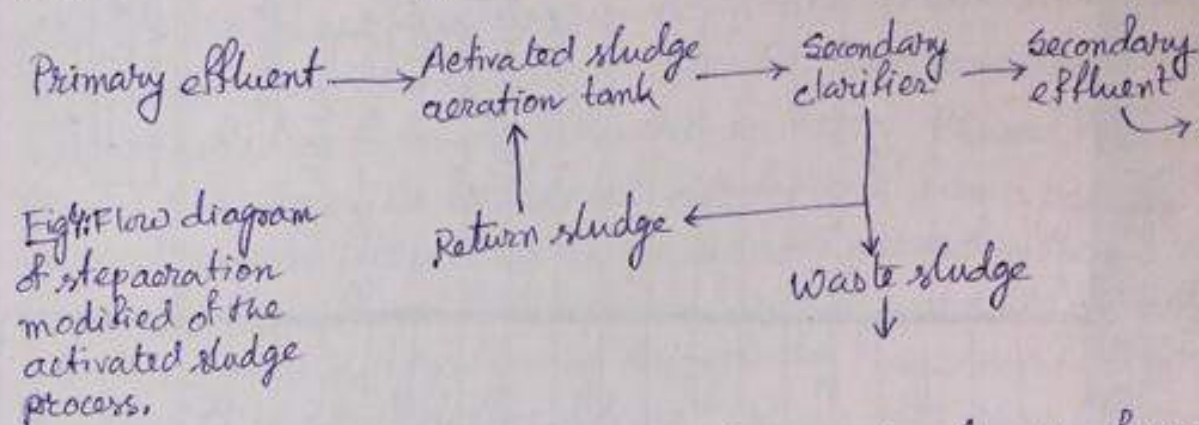 Primary effluent → Activated sludge aeration tank → Secondary clarifier → Secondary effluent
Return sludge
Waste sludge
Fig4: Flow diagram
of stepaeration
modified of the
activated sludge
process.